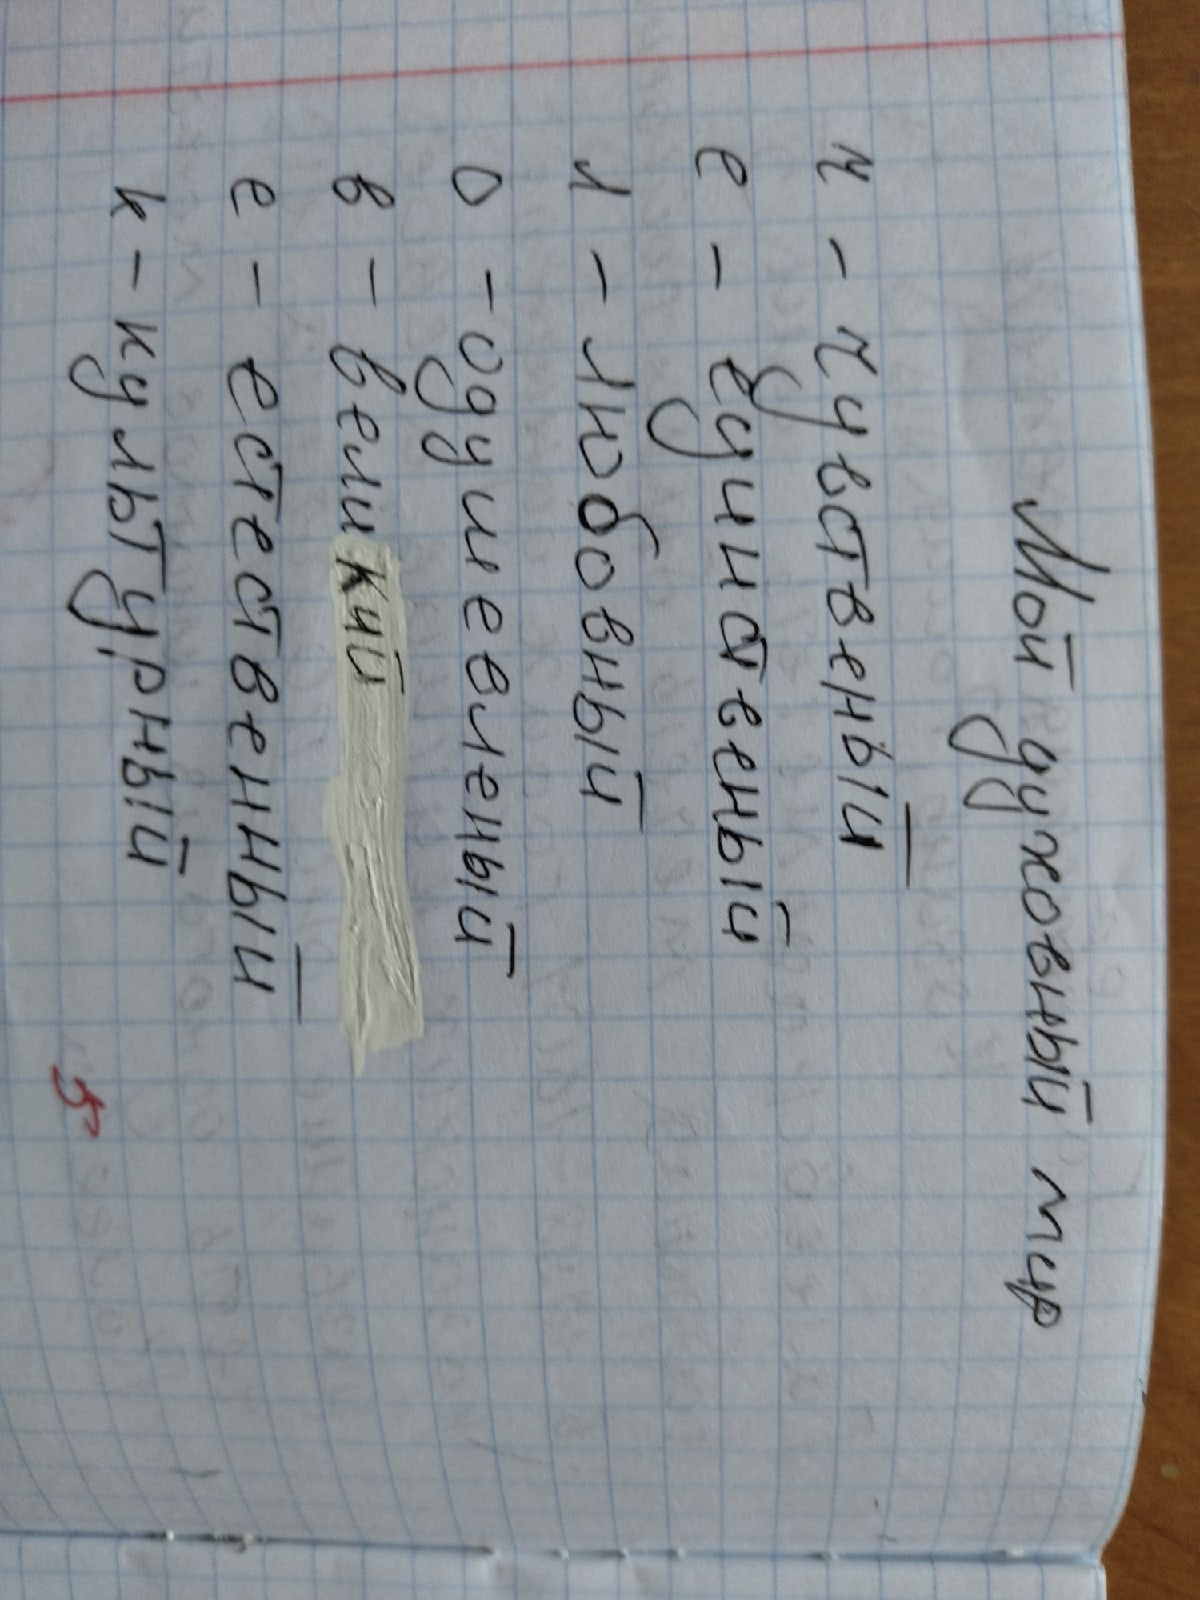 Мой духовный мир
ч - чувственый
е - единственый
л - любовный
о - одушевленый
в - великий
е - естественный
к - культурный
5